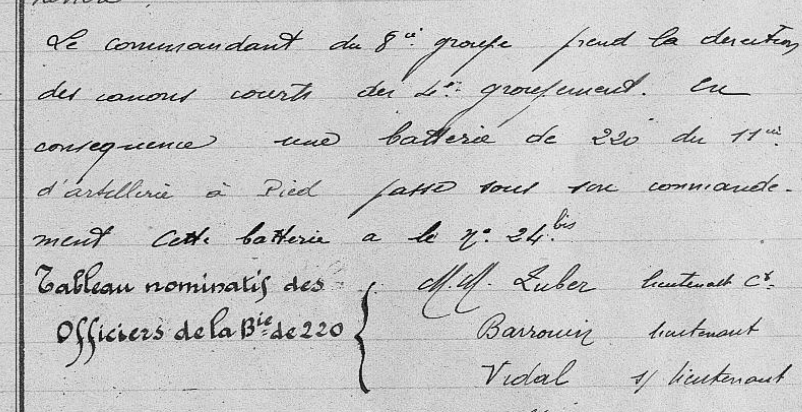 Le commandant du 8e groupe prend la direction
des canons courts du 4e groupement. En
consequence une batterie de 220 du 11e
d'artillerie à Pied passe sous son commande-
ment Cette batterie a le n° 24 bis
Tableau nominatif des M.M. Zuber lieutenant Ct
Officiers de la Bie de 220 Barrouin lieutenant
Vidal s/ lieutenant